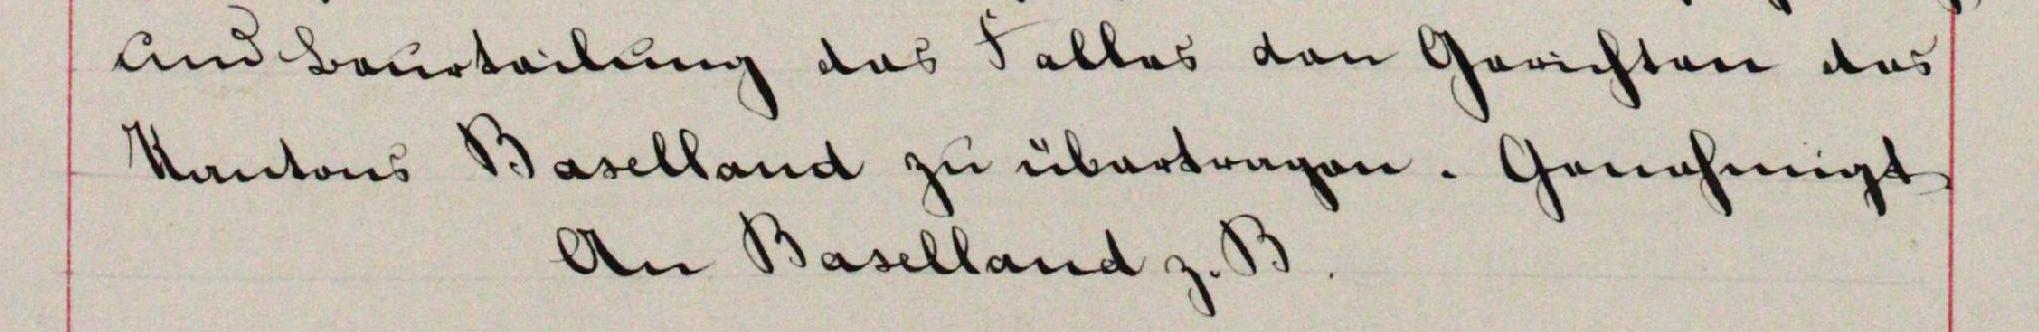 und Beurteilung des Falles den Gerichten des
Kantons Baselland zu übertragen. Genehmigt
An Baselland z. B.